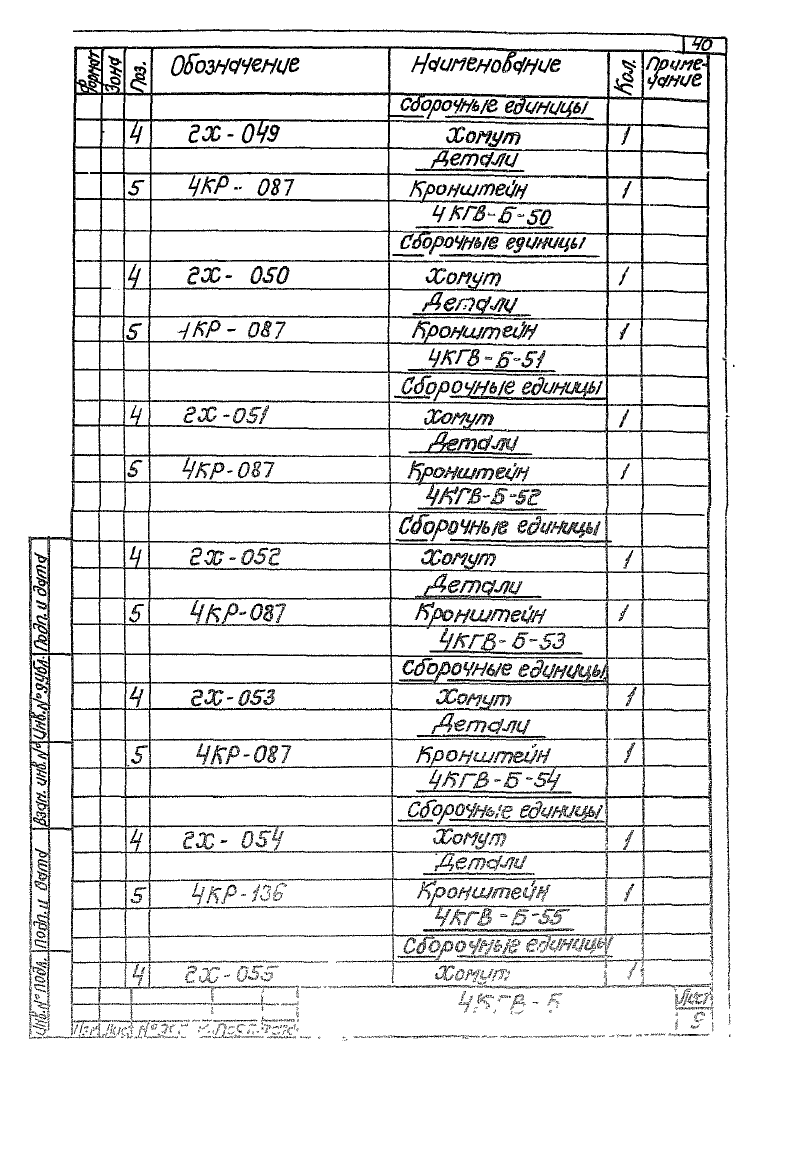 40
Формат Зона Поз. Обозначение Наименование Кол. Примечание
Сборочные единицы
4 2Х-049 Хомут 1
Детали
5 4КР-087 Кронштейн 1
4КГВ-Б-50
Сборочные единицы
4 2Х-050 Хомут 1
Детали
5 4КР-087 Кронштейн 1
4КГВ-Б-51
Сборочные единицы
4 2Х-051 Хомут 1
Детали
5 4КР-087 Кронштейн 1
4КГВ-Б-52
Сборочные единицы
4 2Х-052 Хомут 1
Детали
5 4КР-087 Кронштейн 1
4КГВ-Б-53
Сборочные единицы
4 2Х-053 Хомут 1
Детали
5 4КР-087 Кронштейн 1
4КГВ-Б-54
Сборочные единицы
4 2Х-054 Хомут 1
Детали
5 4КР-136 Кронштейн 1
4КГВ-Б-55
Сборочные единицы
4 2Х-055 Хомут 1
4КГВ-Б
Лист
9
Изм Лист № дата
Инв.№ подл. Подп. и дата Взам. инв.№ Инв.№ дубл. Подп. и дата